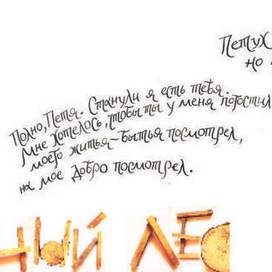 Петух
но
Полно, Петя. Стану ли я есть тебя.
Мне хотелось, чтобы ты у меня погостил,
моего житья-бытья посмотрел,
на мое добро посмотрел.
ный лес